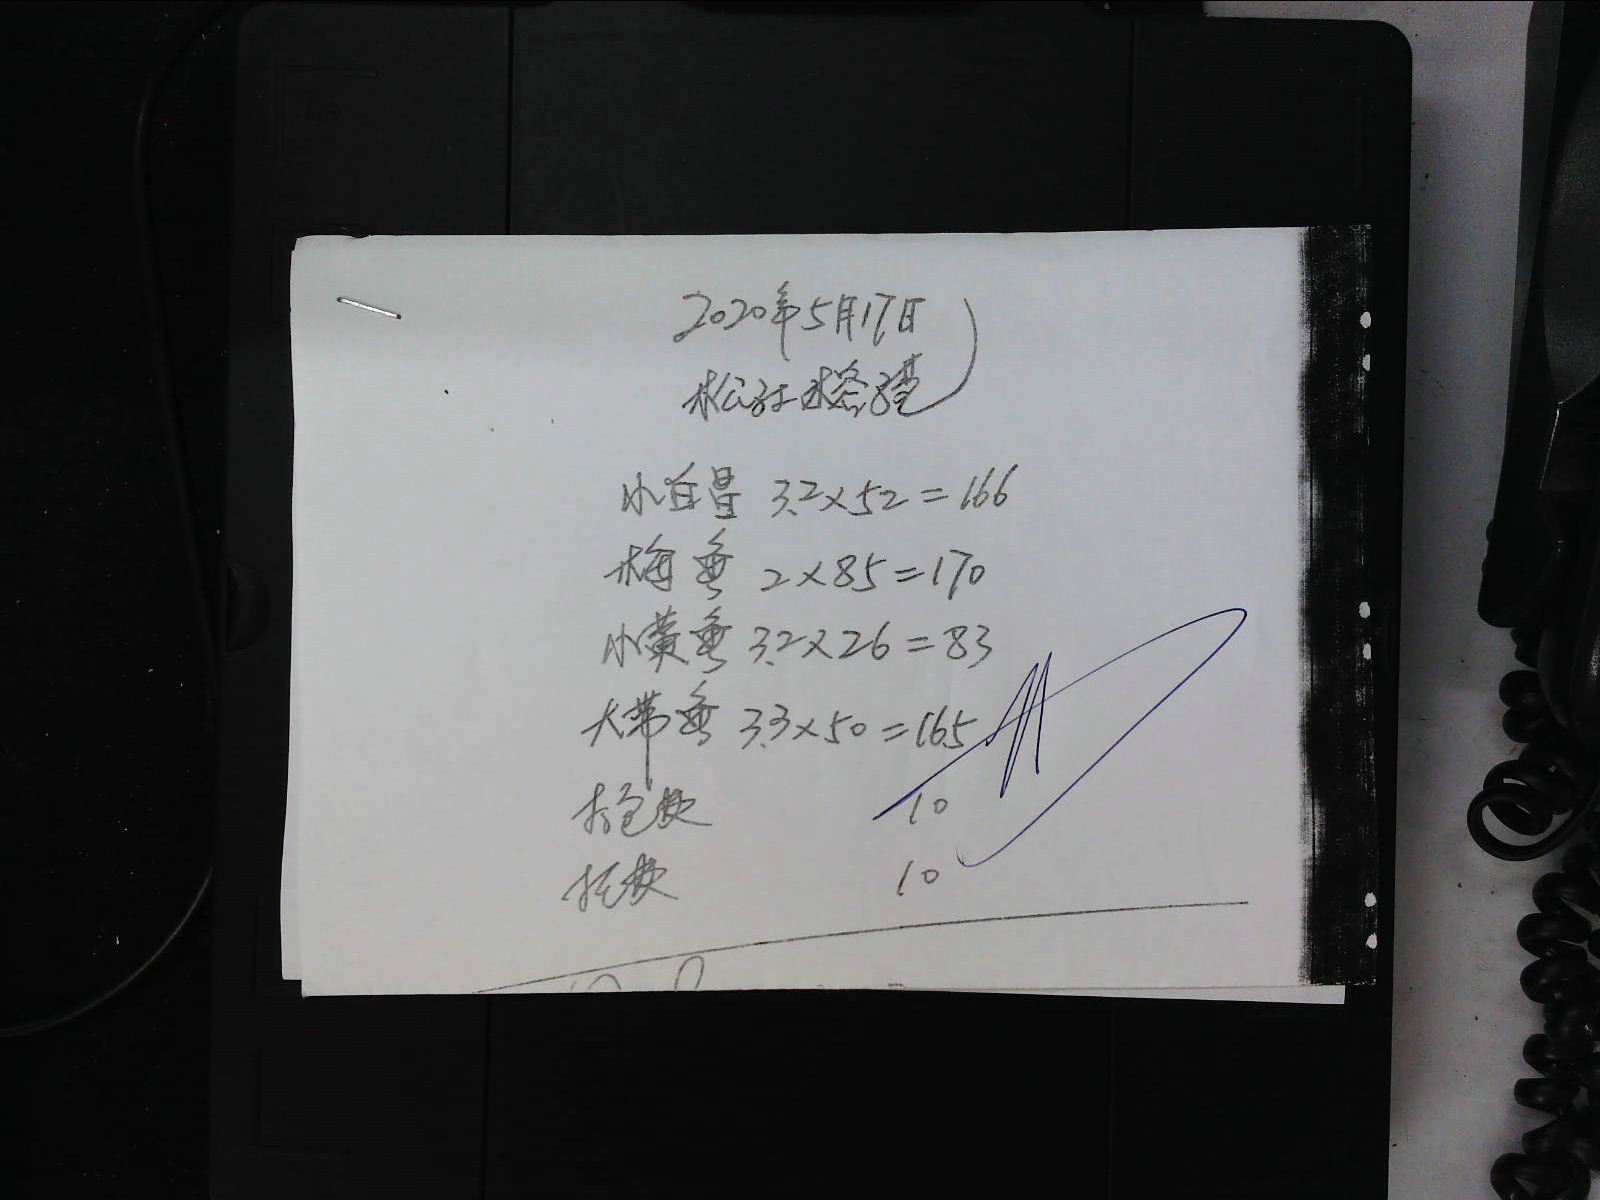 2020年5月17日
小白昌 3.2×52=166
梅鱼 2×85=170
小黄鱼 3.2×26=83
大带鱼 3.3×50=165
打包费 10
托费 10